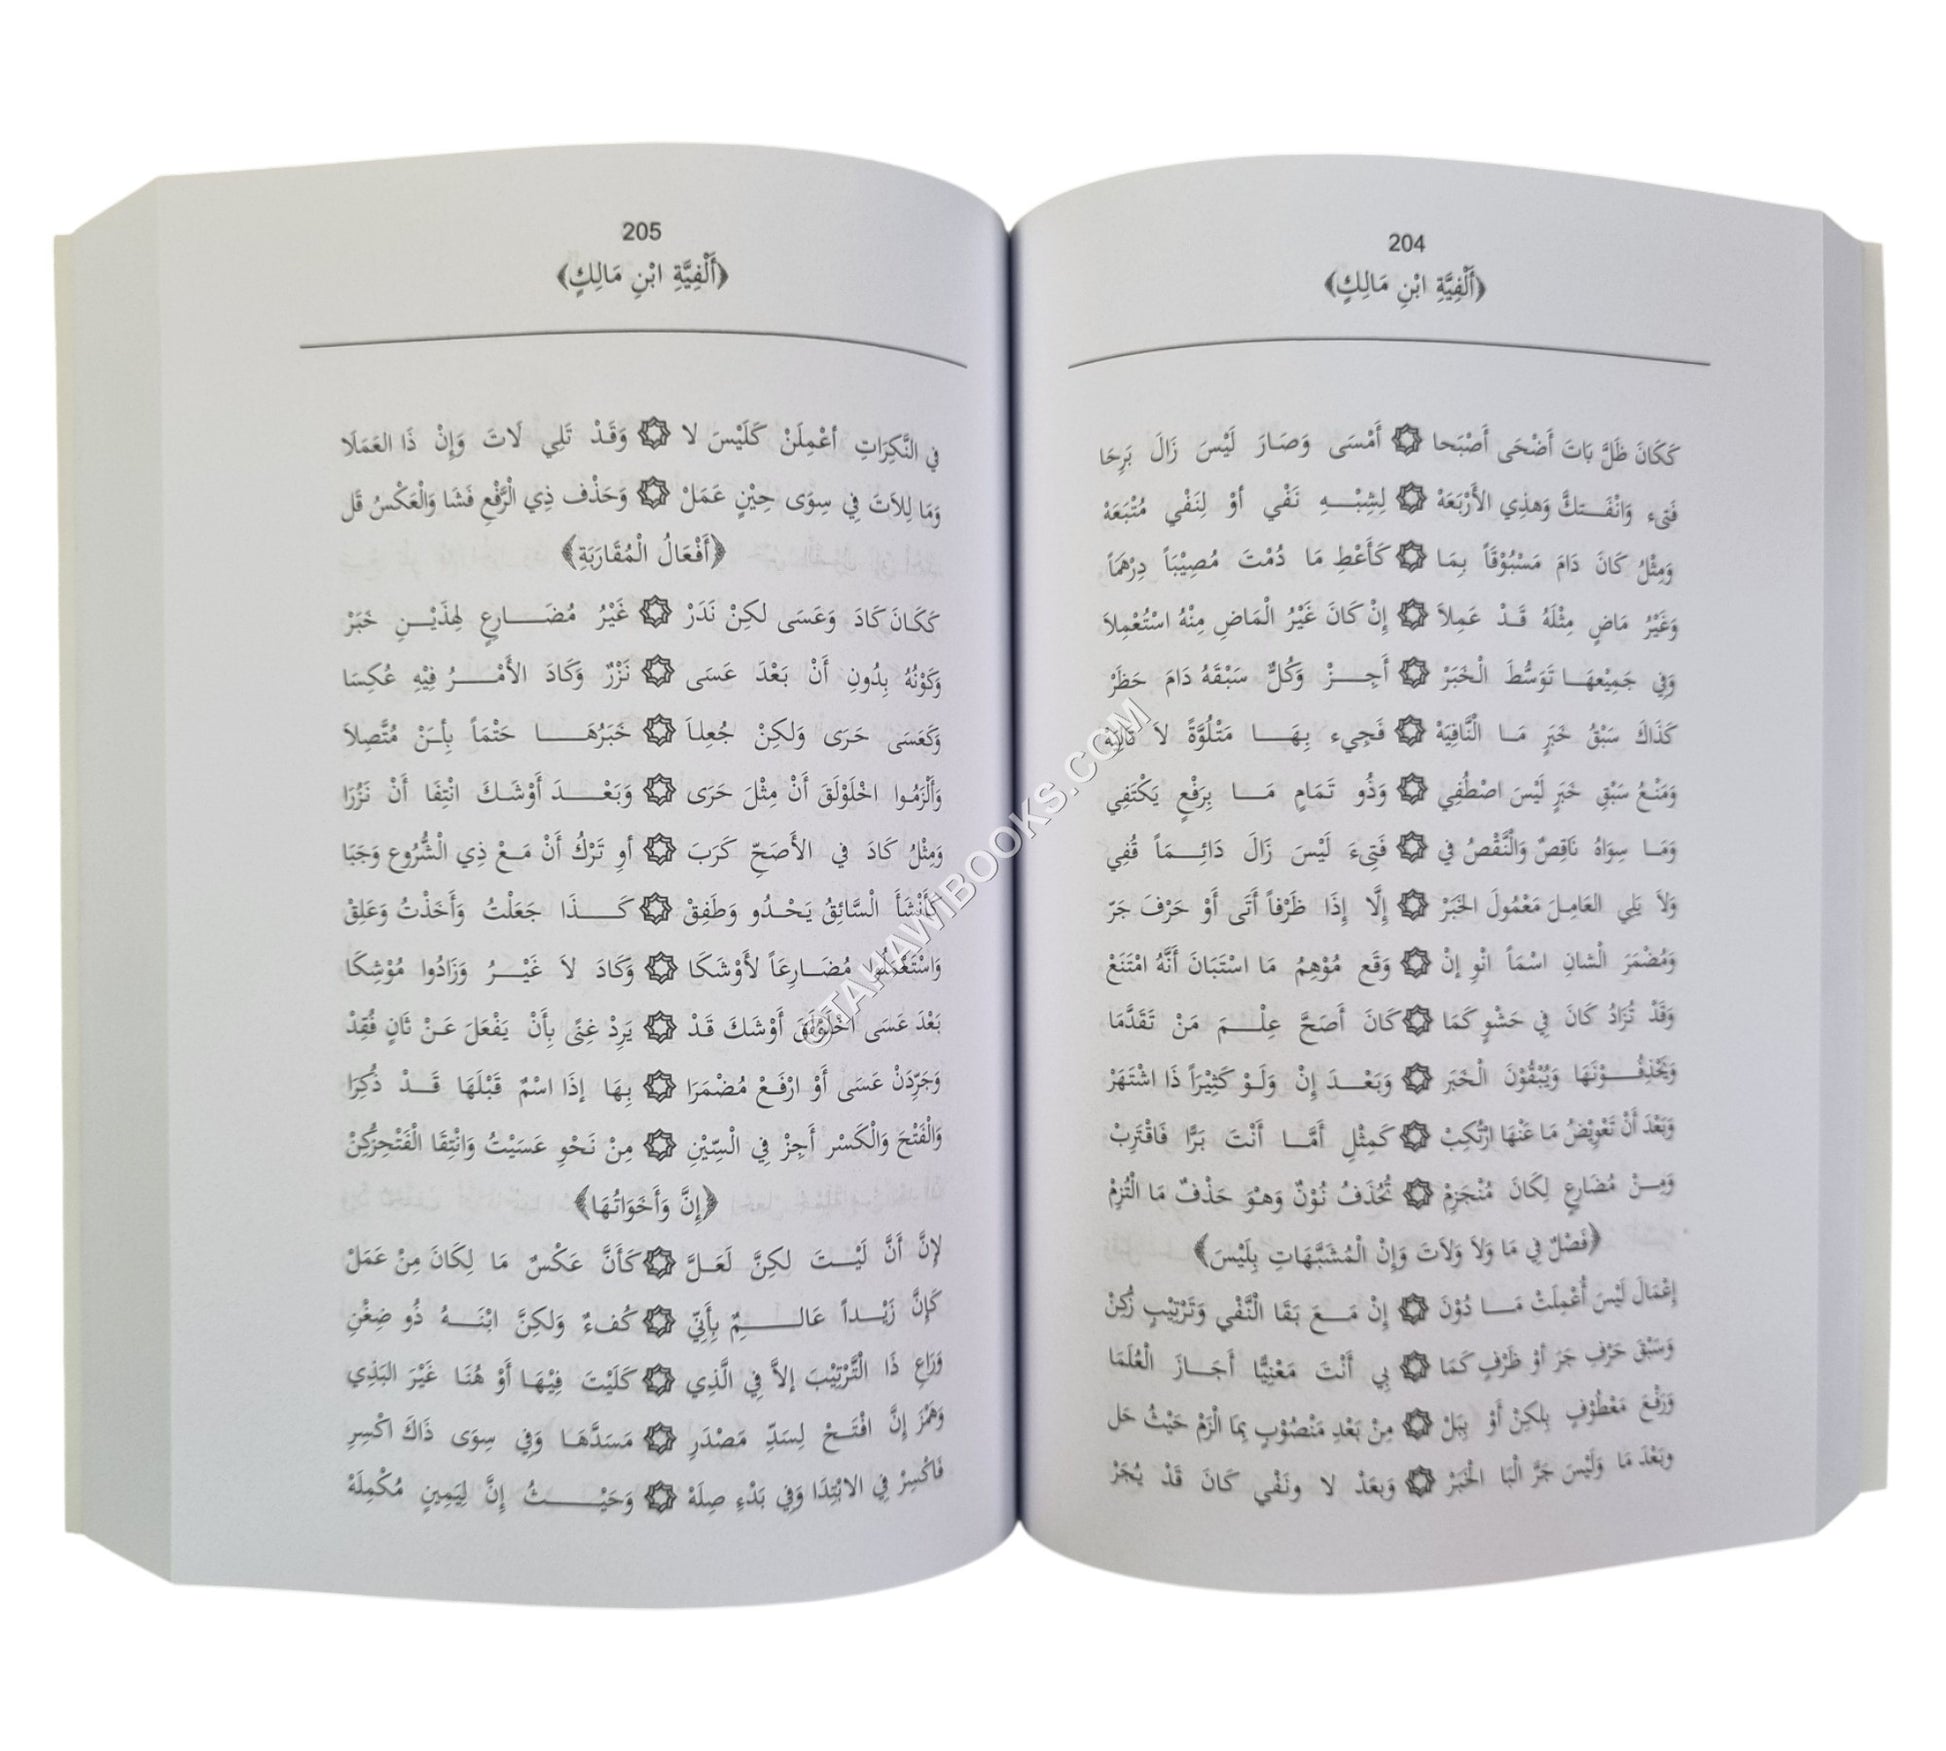 204
﴿أَلْفِيَّةِ ابْنِ مَالِكٍ﴾
كَكَانَ ظَلَّ بَاتَ أَضْحَى أَصْبَحا ۞ أَمْسَى وَصَارَ لَيْسَ زَالَ بَرِحَا
فَتىء وَانْفَـتكَّ وَهذِي الأَرْبَعَهْ ۞ لِشِبْـهِ نَفْي أوْ لِنَفْي مُتْبَعَهْ
وَمِثْلُ كَانَ دَامَ مَسْبُوْقَاً بِمَا ۞ كَأَعْطِ مَا دُمْتَ مُصِيْبَاً دِرْهَمَاً
وَغَيْرُ مَاضٍ مِثْلَهُ قَدْ عَمِلاَ ۞ إِنْ كَانَ غَيْرُ الْمَاضِ مِنْهُ اسْتُعْمِلاَ
وَفِي جَمِيْعهَـا تَوَسُّطَ الْخَبَرْ ۞ أَجِـزْ وَكُلٌّ سَبْقَهُ دَامَ حَظَرْ
كَذَاكَ سَبْقُ خَبَرٍ مَـا الْنَّافِيَهْ ۞ فَجِيء بِهَـا مَتْلُوَّةً لاَ تَالِيَهْ
وَمَنْـعُ سَبْقِ خَبَرٍ لَيْسَ اصْطُفِي ۞ وَذُو تَمَامٍ مَـا بِرَفْعٍ يَكْتَفِي
وَمَـا سِوَاهُ نَاقِصٌ وَالْنَّقْصُ فِي ۞ فَتِىءَ لَيْسَ زَالَ دَائِـمَاً قُفِي
وَلاَ يَلِي العَامِـلَ مَعْمُولَ الخَبَرْ ۞ إِلَّا إِذَا ظَرْفاً أَتَى أَوْ حَرْفَ جَرّ
وَمُضْمَرَ الشانِ اسْمَاً انْوِ إنْ ۞ وَقَع مُوْهِمُ مَا اسْتَبَانَ أَنَّهُ امْتَنَعْ
وَقَدْ تُزَادُ كَانَ فِي حَشْوٍ كَمَا ۞ كَانَ أَصَحَّ عِلْـمَ مَنْ تَقَدَّمَا
وَيَحْذِفُـوْنَهَا وَيُبْقُوْنَ الْخَبَر ۞ وَبَعْـدَ إِنْ وَلَوْ كَثِيْرَاً ذَا اشْتَهَرْ
وَبَعْدَ أَنْ تَعْوِيْضُ مَا عَنْهَا ارْتُكِبْ ۞ كَمِثْلِ أَمَّـا أَنْتَ بَرًّا فَاقْتَرِبْ
وَمِـنْ مُضَارِعٍ لِكَانَ مُنْجَزِمْ ۞ تُحْذَفُ نُوْنٌ وَهـوَ حَذْفٌ مَا الْتُزِمْ
﴿فَصْلٌ فِي مَا وَلاَ وَلاَتَ وَإِنْ الْمُشَبَّهَاتِ بِلَيْسَ﴾
إِعْمَالَ لَيْسَ أُعْمِلَتْ مَـا دُوْنَ ۞ إِنْ مَـعَ بَقَا الْنَّفْيِ وَتَرْتِيْبٍ زُكِنْ
وَسَبْقَ حَرْفِ جَرَ أوْ ظَرْفٍ كَمَا ۞ بِي أَنْتَ مَعْنِيًّا أَجَـازَ الْعُلَمَا
وَرَفْعَ مَعْطُوْفٍ بِلكِنْ أَوْ بِبَلْ ۞ مِنْ بَعْدِ مَنْصُوْبٍ بِمَا الْزَمْ حَيْثُ حَل
وبَعْدَ مَا وَلَيْسَ جَرَّ الْبَا الْخَبَرْ ۞ وَبعَدْ لا ونَفْيِ كَانَ قَدْ يُجَرْ
205
﴿أَلْفِيَّةِ ابْنِ مَالِكٍ﴾
في النَّكِرَاتِ أعْمِلَنْ كَلَيْسَ لا ۞ وَقَدْ تَلِي لَاتَ وَإِنْ ذَا العَمَلَا
وَمَا لِلاَتَ فِي سِوَى حِيْنٍ عَمَلْ ۞ وَحَذْف ذِي الْرَّفْعِ فَشَا وَالْعَكْسُ قَل
﴿أَفْعَالُ الْمُقَارَبَةِ﴾
كَكَـانَ كَادَ وَعَسَى لكِنْ نَدَرْ ۞ غَيْرُ مُضَـارِعٍ لِهذَيْـنِ خَبَرْ
وَكَوْنُهُ بِدُونِ أَنْ بَعْدَ عَسَى ۞ نَزْرٌ وَكَادَ الأَمْـرُ فِيْهِ عُكِسَا
وَكَعَسَى حَرَى وَلكِنْ جُعِلـاَ ۞ خَبَرُهَـا حَتْمَاً بِأَـنْ مُتَّصِلاَ
وَأَلْزَمُوا اخْلَوْلَقَ أَنْ مِثْلَ حَرَى ۞ وَبَعْـدَ أَوْشَكَ انْتِفَا أَنْ نَزُرَا
وَمِثْلُ كَادَ فِي الأَصَحّ كَرَبَ ۞ أوِ تَرْكُ أَنْ مَـعْ ذِي الْشُّرُوع وَجَبَا
كَأَنْشَأَ الْسَائِقُ يَحْدُو وَطَفِقْ ۞ كَـذَا جَعَلْتُ وَأَخَذْتُ وَعَلِقْ
وَاسْتَعْمَلُوا مُضَـارِعَاً لأَوْشَكَا ۞ وَكَادَ لاَ غَيْـرُ وَزَادُوا مُوْشِكَا
بَعْدَ عَسَى اخْلَوْلَقَ أَوْشَكَ قَدْ ۞ يَرِدْ غِنًى بِأَنْ يَفْعَلَ عَنْ ثَانٍ فُقِدْ
وَجَرِّدَنْ عَسَى أَوْ ارْفَعْ مُضْمَرَا ۞ بِهَا إِذَا اسْمٌ قَبْلَهَا قَـدْ ذُكِرَا
وَالْفَتْحَ وَالْكَسْر أَجِزْ فِي الْسِّيْنِ ۞ مِنْ نَحْوِ عَسَيْتُ وَانْتِقَا الْفَتْحِزُكِنْ
﴿إِنَّ وَأَخَوَاتُهَا﴾
لإِنَّ أَنَّ لَيْـتَ لكِنَّ لَعَـلَّ ۞ كَأَنَّ عَكْسُ مَا لِكَانَ مِنْ عَمَلْ
كَإِنَّ زَيْـداً عَالـِمٌ بِأَنِّي ۞ كُفءٌ وَلكِنَّ ابْنَـهُ ذُو ضِغْنِ
وَرَاعِ ذَا الْتَّرْتِيْبَ إلاَّ فِي الَّذِي ۞ كَلَيْتَ فِيْهَـا أَوْ هُنَا غَيْرَ البَذِي
وَهَمْزَ إِنَّ افْتَـحْ لِسَدِّ مَصْدَرٍ ۞ مَسَدَّهَـا وَفِي سِوَى ذَاكَ اكْسِرِ
فَاكْسِرْ فِي الابْتِدَا وَفِي بَدْءِ صِلَهْ ۞ وَحَيْـثُ إِنَّ لِيَمِينٍ مُكْمِلَهْ
©TAHAWIBOOKS.COM